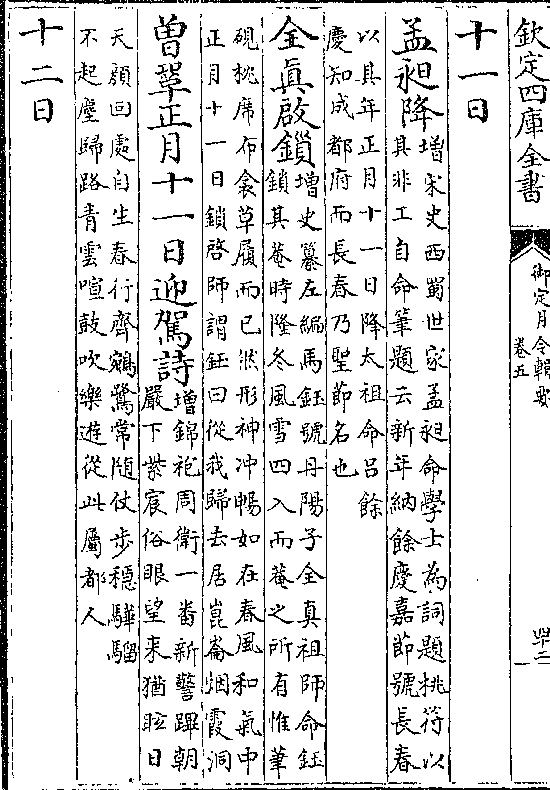 欽定四庫全書
御定月令輯要
卷五
四十二
十一日
孟昶降增宋史西蜀世家孟昶命學士為詞題桃符以
其非工自命筆題云新年納餘慶嘉節號長春
以其年正月十一日降太祖命呂餘
慶知成都府而長春乃聖節名也
全真啟鎖增史纂左編馬鈺號丹陽子全真祖師命鈺
鎖其菴時隆冬風雪四入而菴之所有惟筆
硯枕席布衾草履而已然形神冲暢如在春風和氣中
正月十一日鎖啓師謂鈺曰從我歸去居崑崙烟霞洞
曾鞏正月十一日迎駕詩增錦袍周衛一番新警蹕朝
嚴下紫宸俗眼望来猶眩日
天顔回處自生春行齊鵷鷺常随仗步穏驊騮
不起塵歸路青雲喧鼓吹樂遊從此屬都人
十二日